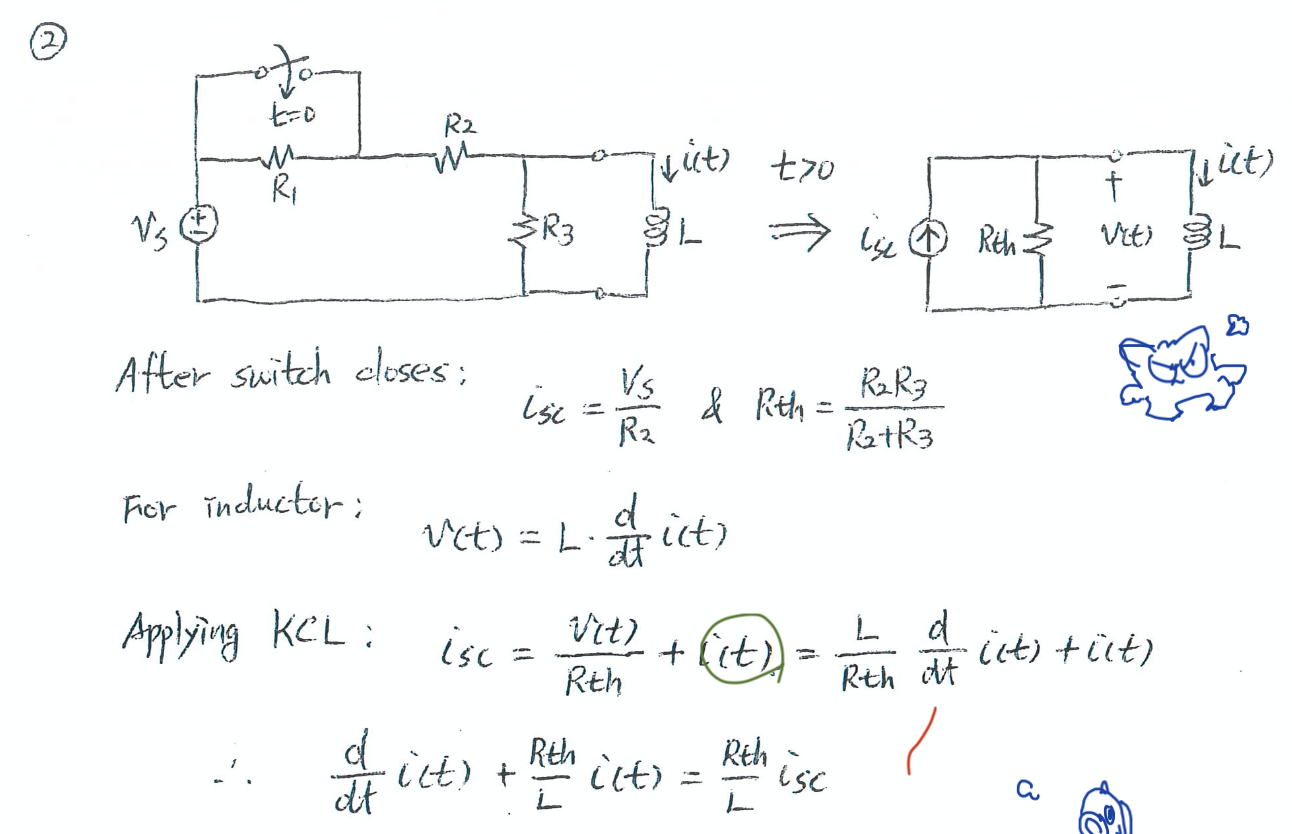 ②
t=0
R1
R2
Vs
R3
i(t)
L
t>0
⇒
isc
Rth
+
V(t)
−
i(t)
L
After switch closes: isc = Vs/R2 & Rth = R2R3/R2+R3
For inductor: V(t) = L · d/dt i(t)
Applying KCL: isc = V(t)/Rth + i(t) = L/Rth d/dt i(t) + i(t)
∴ d/dt i(t) + Rth/L i(t) = Rth/L isc
a